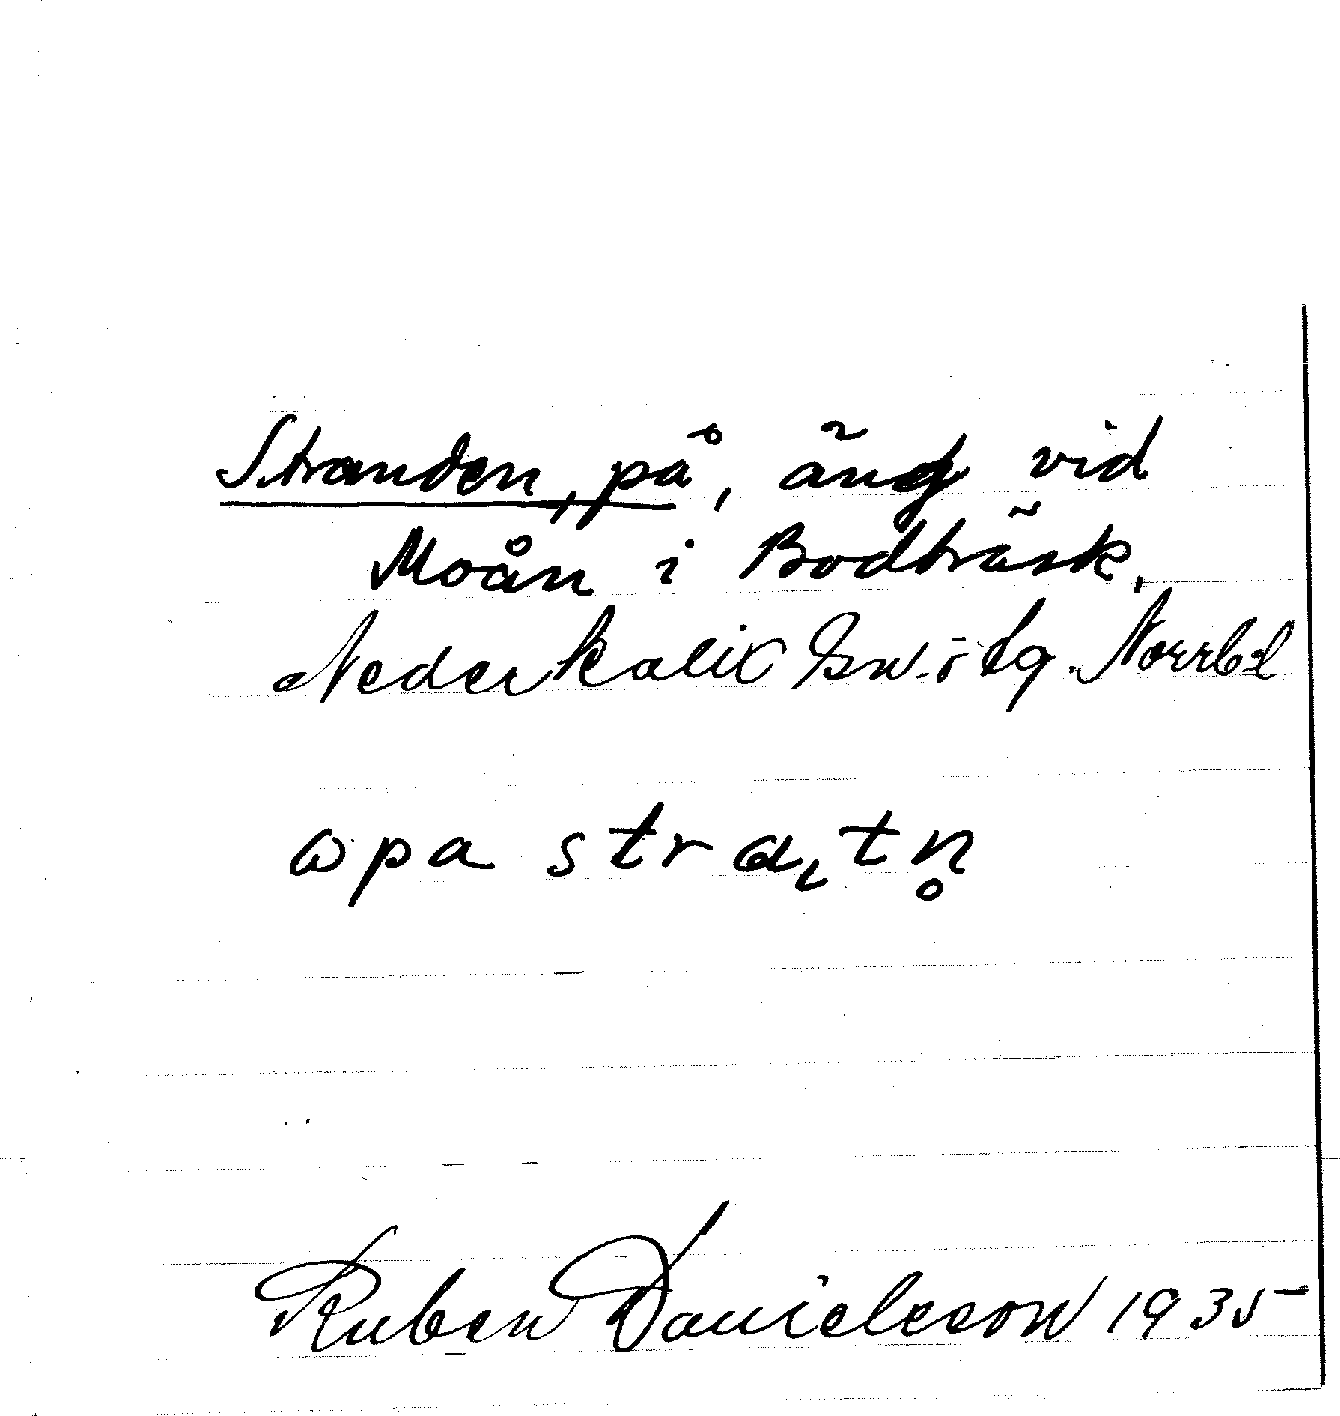 Stranden, på, äng vid
Moån i Bodträsk.
Nederkalix sn. i tg. Norrb.l
ωpa strat,tn̥
Ruben Danielsson 1935